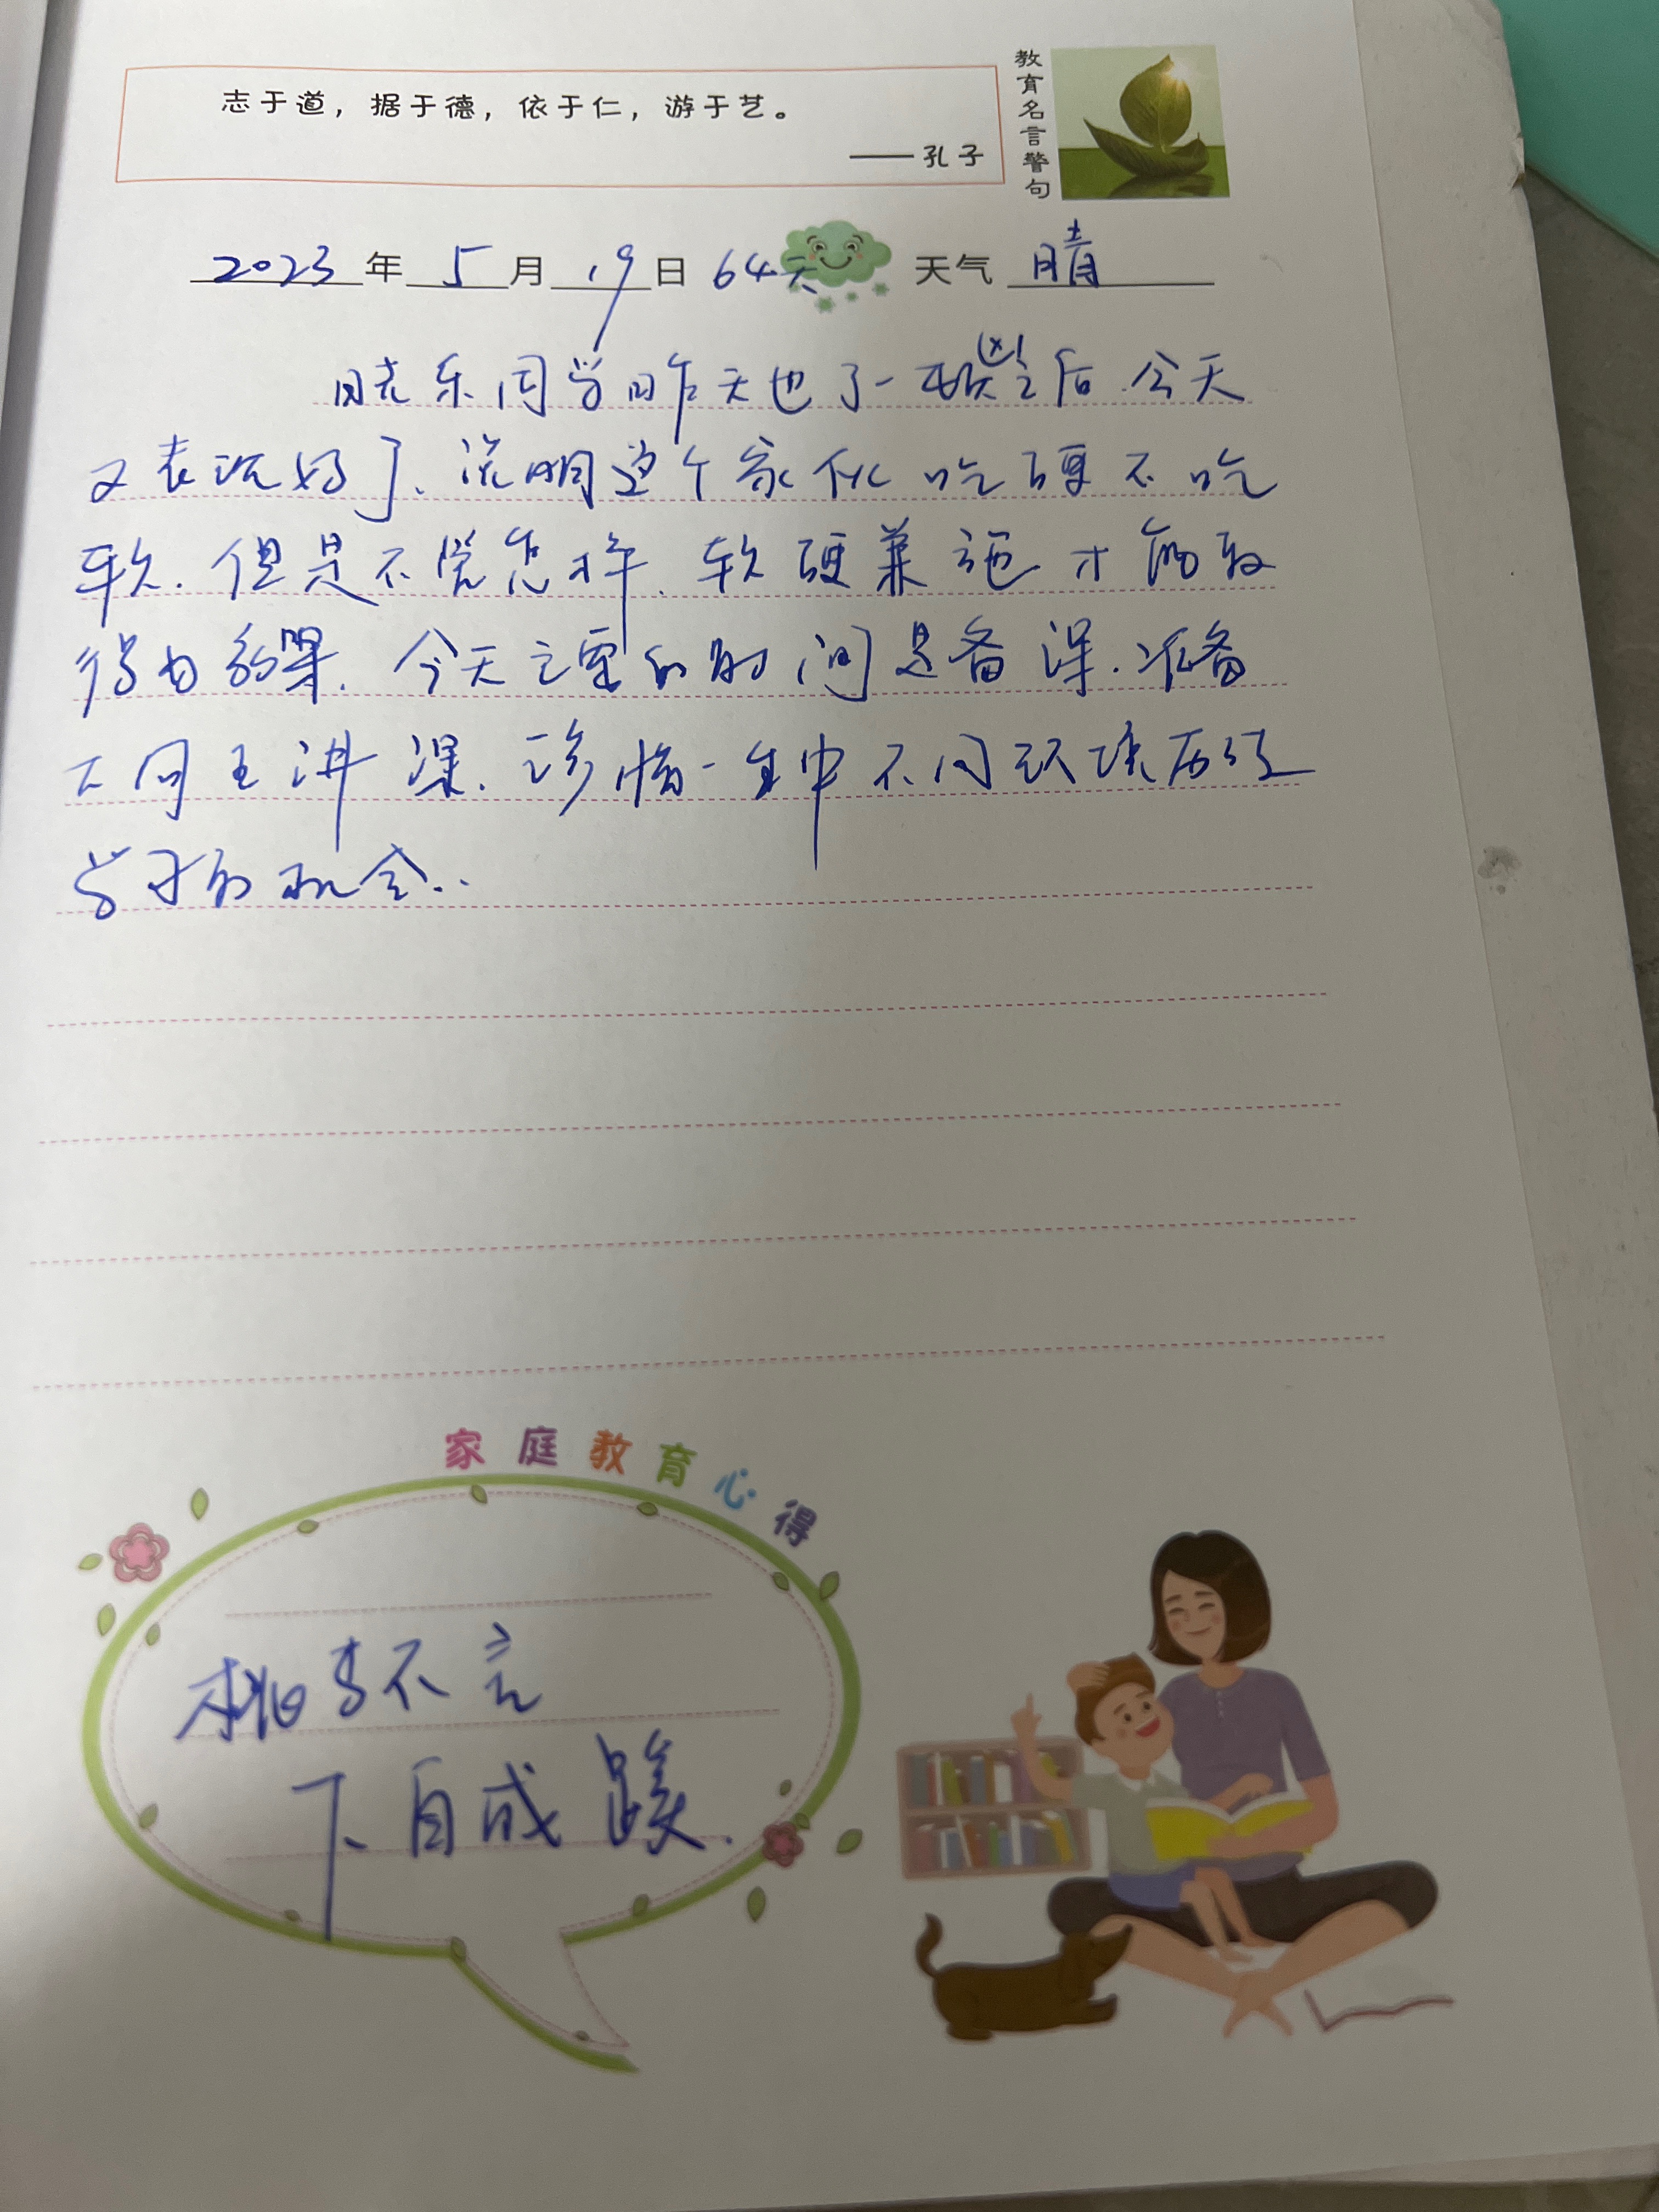 志于道，据于德，依于仁，游于艺。
——孔子
教育名言警句
2023年5月19日 64天 天气 晴
晓东同学昨天也了一顿(x)之后 今天
又表现好了、说明这个家伙吃硬不吃
软.但是不管怎样、软硬兼施才能取
得出效果.今天主要的时间是备课.准备
大同主讲课.珍惜一生中不同环境历经
学习的机会..
家庭教育心得
桃李不言
下自成蹊.